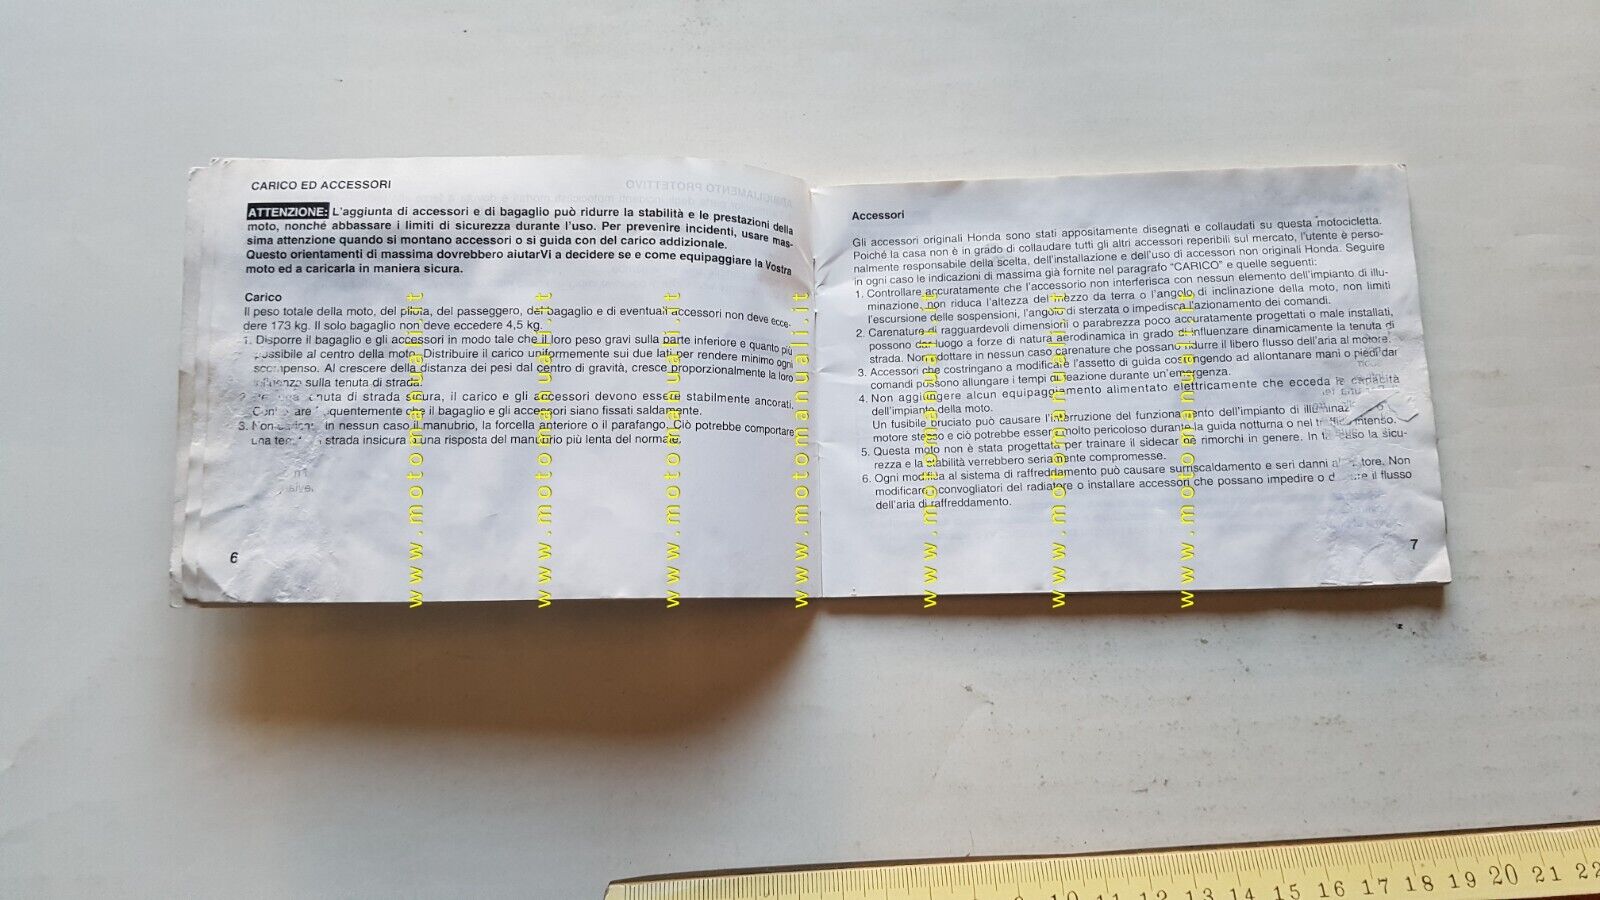 CARICO ED ACCESSORI
ATTENZIONE: L'aggiunta di accessori e di bagaglio può ridurre la stabilità e le prestazioni della
moto, nonché abbassare i limiti di sicurezza durante l'uso. Per prevenire incidenti, usare mas-
sima attenzione quando si montano accessori o si guida con del carico addizionale.
Questo orientamenti di massima dovrebbero aiutarVi a decidere se e come equipaggiare la Vostra
moto ed a caricarla in maniera sicura.
Carico
Il peso totale della moto, del pilota, del passeggero, del bagaglio e di eventuali accessori non deve ecce-
dere 173 kg. Il solo bagaglio non deve eccedere 4,5 kg.
1. Disporre il bagaglio e gli accessori in modo tale che il loro peso gravi sulla parte inferiore e quanto più
possibile al centro della moto. Distribuire il carico uniformemente sui due lati per rendere minimo ogni
scompenso. Al crescere della distanza dei pesi dal centro di gravità, cresce proporzionalmente la loro
influenza sulla tenuta di strada.
2. tenuta di strada sicura, il carico e gli accessori devono essere stabilmente ancorati.
che il bagaglio e gli accessori siano fissati saldamente.
3. Non in nessun caso il manubrio, la forcella anteriore o il parafango. Ciò potrebbe comportare
una strada insicura o una risposta del manubrio più lenta del normale.
6
Accessori
Gli accessori originali Honda sono stati appositamente disegnati e collaudati su questa motocicletta.
Poiché la casa non è in grado di collaudare tutti gli altri accessori reperibili sul mercato, l'utente è perso-
nalmente responsabile della scelta, dell'installazione e dell'uso di accessori non originali Honda. Seguire
in ogni caso le indicazioni di massima già fornite nel paragrafo "CARICO" e quelle seguenti:
1. Controllare accuratamente che l'accessorio non interferisca con nessun elemento dell'impianto di illu-
minazione, non riduca l'altezza del mezzo da terra o l'angolo di inclinazione della moto, non limiti
l'escursione delle sospensioni, l'angolo di sterzata o impedisca l'azionamento dei comandi.
2. Carenature di ragguardevoli dimensioni o parabrezza poco accuratamente progettati o male installati,
possono dar luogo a forze di natura aerodinamica in grado di influenzare dinamicamente la tenuta di
strada. Non adottare in nessun caso carenature che possano ridurre il libero flusso dell'aria al motore.
3. Accessori che costringano a modificare l'assetto di guida costringendo ad allontanare mani o piedi dai
comandi possono allungare i tempi di reazione durante un'emergenza.
4. Non aggiungere alcun equipaggiamento alimentato elettricamente che ecceda le capacità
dell'impianto della moto.
Un fusibile bruciato può causare l'interruzione del funzionamento dell'impianto di o
motore stesso e ciò potrebbe essere molto pericoloso durante la guida notturna o nel traffico intenso.
5. Questa moto non è stata progettata per trainare il sidecar né rimorchi in genere. In caso la sicu-
rezza e la stabilità verrebbero seriamente compromesse.
6. Ogni modifica al sistema di raffreddamento può causare surriscaldamento e seri danni al motore. Non
modificare i convogliatori del radiatore o installare accessori che possano impedire o il flusso
dell'aria di raffreddamento.
7
www.motomanuali.it
www.motomanuali.it
www.motomanuali.it
www.motomanuali.it
www.motomanuali.it
www.motomanuali.it
www.motomanuali.it
10 11 12 13 14 15 16 17 18 19 20 21 22